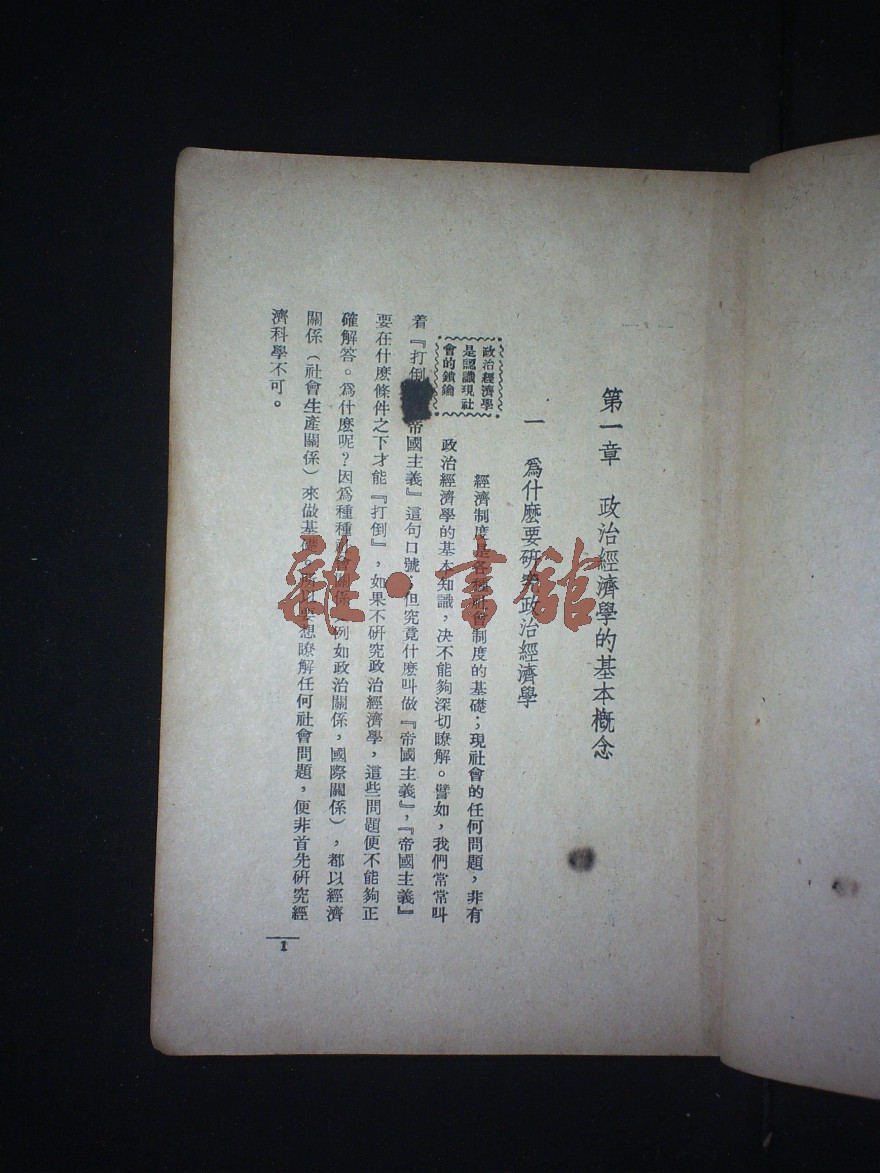 第一章　政治經濟學的基本概念
一　爲什麽要研究政治經濟學
政治經濟學
是認識現社
會的鎖鑰
經濟制度是各種社會制度的基礎；現社會的任何問題，非有
政治經濟學的基本知識，決不能夠深切瞭解。譬如，我們常常叫
着『打倒帝國主義』這句口號；但究竟什麽叫做『帝國主義』，『帝國主義』
要在什麽條件之下才能『打倒』，如果不研究政治經濟學，這些問題便不能夠正
確解答。爲什麽呢？因爲種種社會關係（例如政治關係，國際關係），都以經濟
關係（社會生產關係）來做基礎，所以要想瞭解任何社會問題，便非首先研究經
濟科學不可。
1
雜·書館